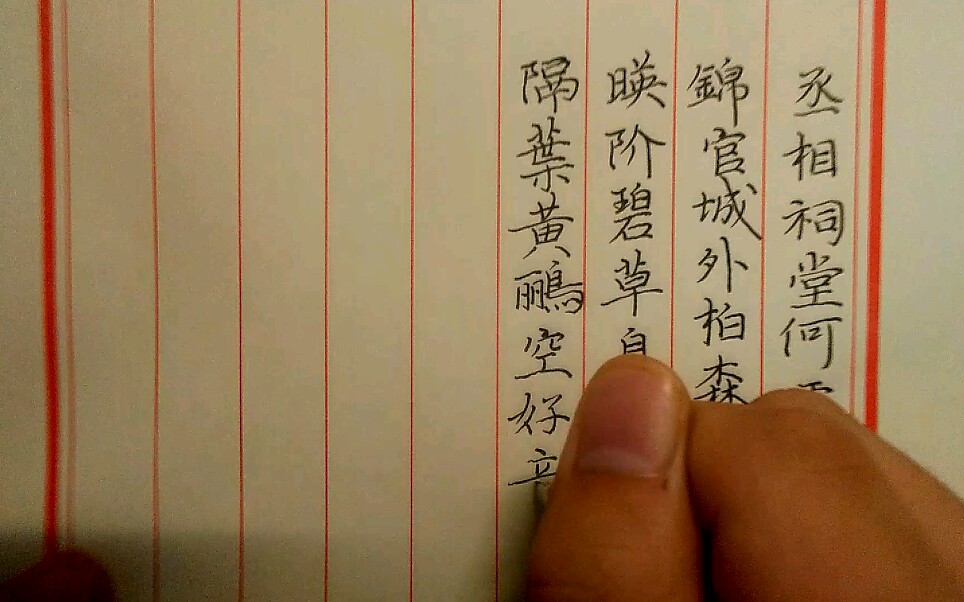 丞相祠堂何
錦官城外柏森
暎阶碧草自
隔葉黃鸝空好